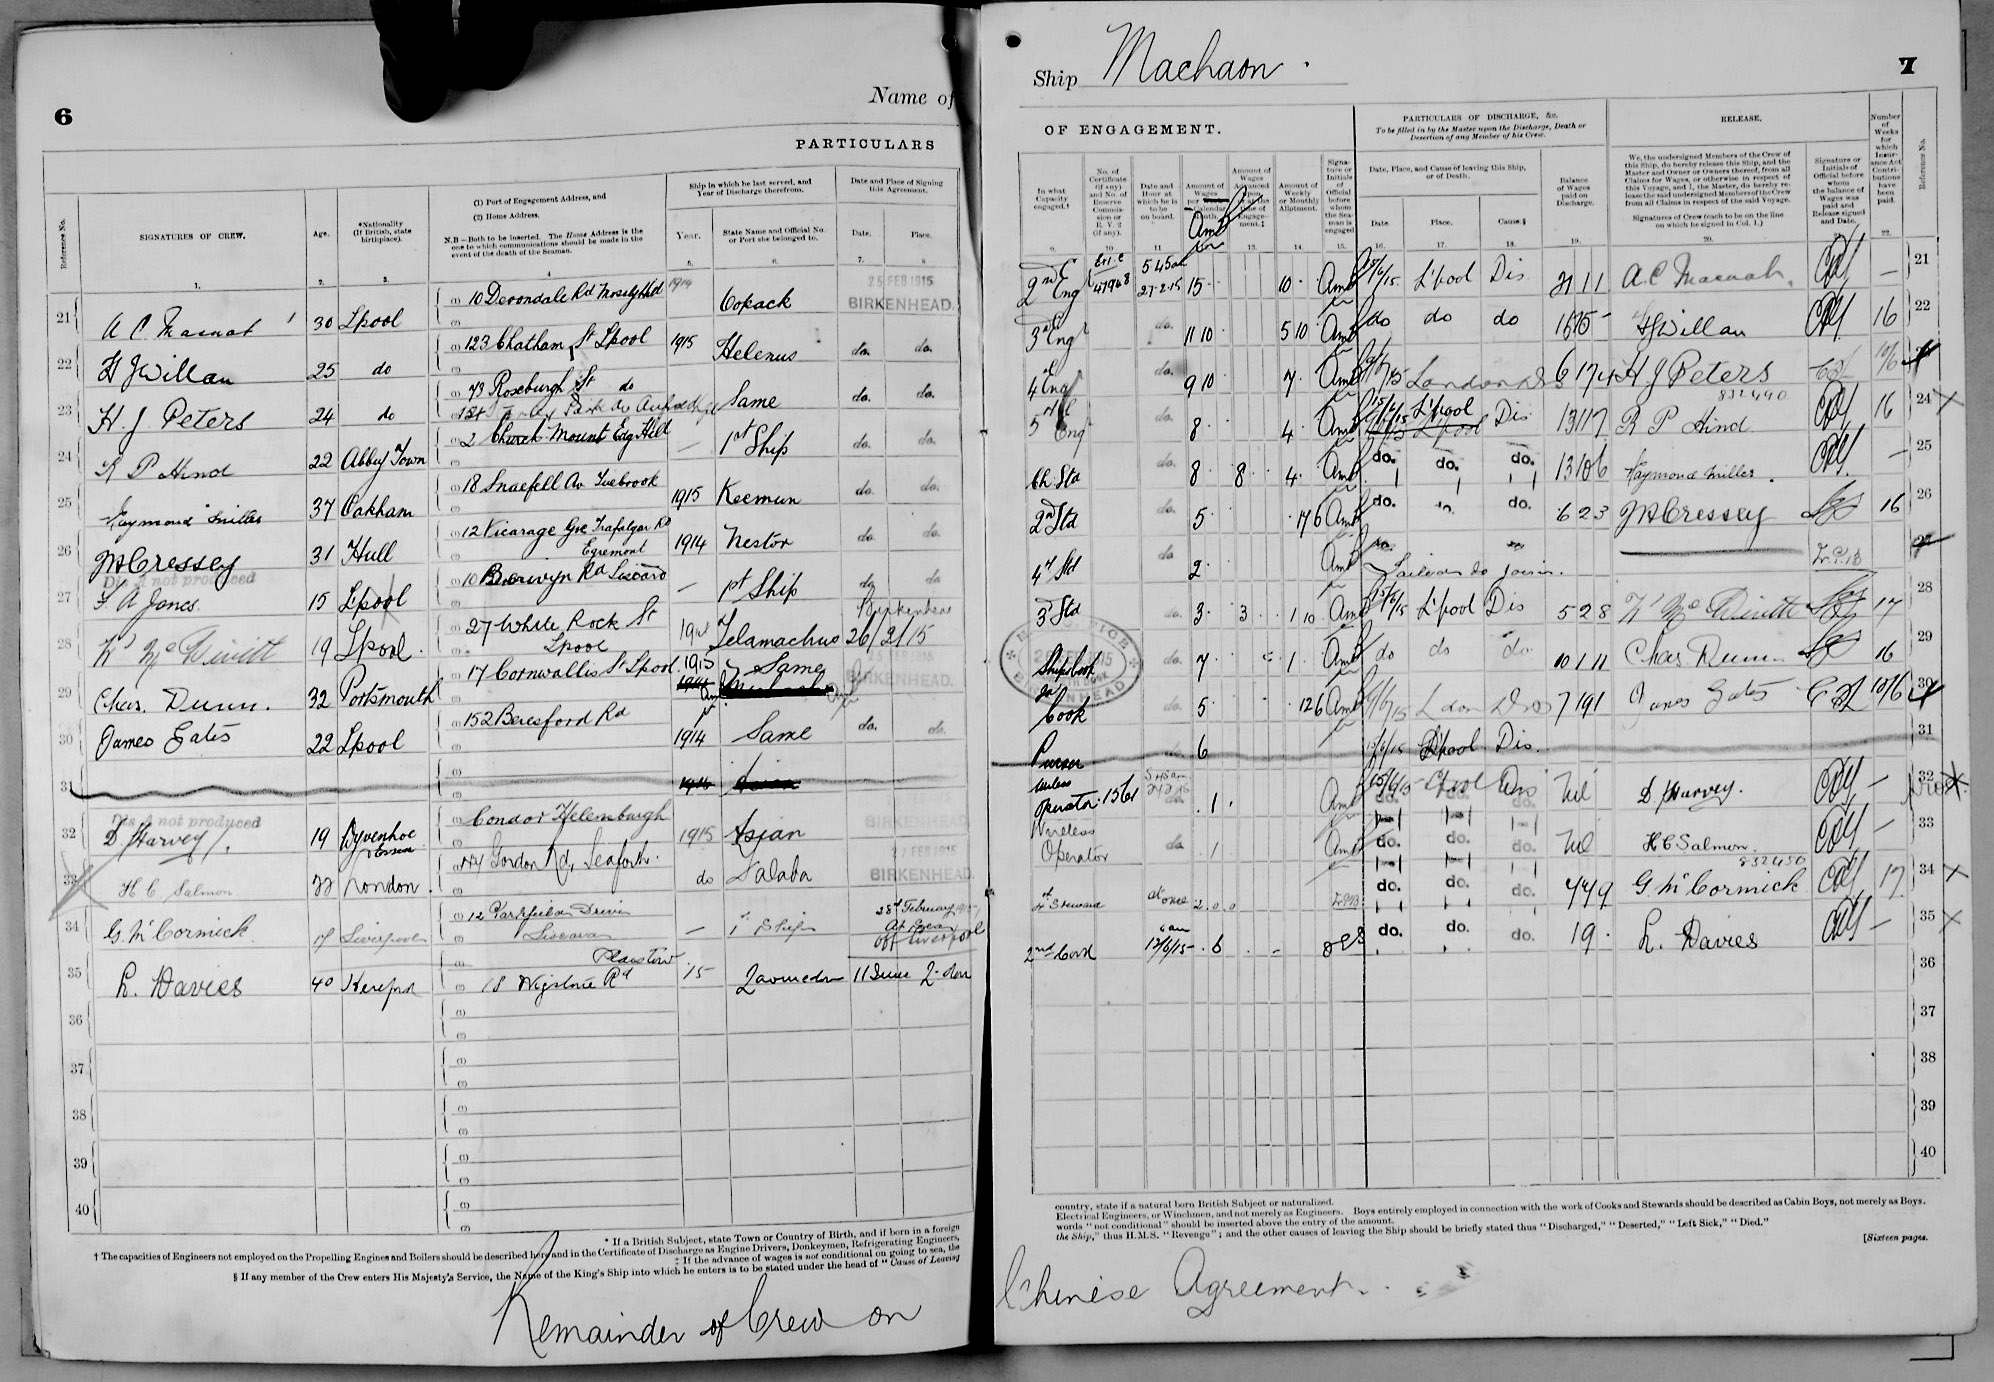 6
Name of
PARTICULARS
Reference No.
SIGNATURES OF CREW.
Age.
*Nationality (If British, state birthplace).
(1) Port of Engagement Address, and
(2) Home Address.
N.B—Both to be inserted. The Home Address is the one to which communications should be made in the event of the death of the Seaman.
Ship in which he last served, and Year of Discharge therefrom.
Year.
State Name and Official No. or Port she belonged to.
Date and Place of Signing this Agreement.
Date.
Place.
1. 2. 3. 4 5. 6. 7. 8
21 30 Lpool 10 Devondale Rd 1914 25 FEB 1915 BIRKENHEAD.
22 H J Willan 25 do 123 Chatham St Lpool 1915 Helenus do. do.
23 H. J Peters 24 do 73 Roxburgh St do Same do. do.
24 R P Hind 22 Abbey Town 2 Church Mount Edg Hill — 1st Ship do. do.
25 Raymond Miller 37 Oakham 18 Snaefell Av Tuebrook 1915 Keemun do. do.
26 31 Hull 12 Vicarage Gve Trafalgar Rd Egremont 1914 Nestor do. do.
Dis A not produced
27 F A Jones. 15 Lpool 10 Berwyn Rd Liscard — 1st Ship do do
28 19 Lpool. 27 White Rock St Lpool Telamachus 26/2/15 Birkenhead
29 Chas. Dunn. 32 Portsmouth 17 Cornwallis St Lpool. 1915 Same 25 FEB 1915 BIRKENHEAD.
30 James Gates 22 Lpool 152 Beresford Rd 1914 Same do. do.
31
Dis A not produced
32 D Harvey. 19 Essex Condor Helensburgh 1915 Asian BIRKENHEAD
33 H C Salmon 22 London. Gordon Rd, Seaforth. do Salaba 27 FEB 1915 BIRKENHEAD.
34 G. McCormick. 17 Liverpool 12 Parkfield Drive Liscard — 1st Ship 28th February At Sea off Liverpool
35 L. Davies 40 Plaistow 18 15 11 June
36
37
38
39
40
* If a British Subject, state Town or Country of Birth, and if born in a foreign
† The capacities of Engineers not employed on the Propelling Engines and Boilers should be described here and in the Certificate of Discharge as Engine Drivers, Donkeymen, Refrigerating Engineers,
‡ If the advance of wages is not conditional on going to sea, the
§ If any member of the Crew enters His Majesty's Service, the Name of the King's Ship into which he enters is to be stated under the head of "Cause of Leaving
Remainder of Crew on
Ship Machaon.
7
OF ENGAGEMENT.
PARTICULARS OF DISCHARGE, &c.
To be filled in by the Master upon the Discharge, Death or Desertion of any Member of his Crew.
RELEASE.
Number of Weeks for which Insurance Act Contributions have been paid.
Reference No.
In what Capacity engaged.†
No. of Certificate (if any) and No. of Reserve Commission or R.V.2 (if any).
Date and Hour at which he is to be on board.
Amount of Wages per Calendar Month.
Amount of Wages Advanced upon at the time of Engagement.‡
Amount of Weekly or Monthly Allotment.
Signature or Initials of Official before whom the Seaman is engaged
Date, Place, and Cause of leaving this Ship, or of Death.
Date.
Place.
Cause.§
Balance of Wages paid on Discharge.
We, the undersigned Members of the Crew of this Ship, do hereby release this Ship, and the Master and Owner or Owners thereof, from all Claims for Wages, or otherwise in respect of this Voyage, and I, the Master, do hereby release the said undersigned Members of the Crew from all Claims in respect of the said Voyage.
Signatures of Crew (each to be on the line on which he signed in Col. 1.)
Signature or Initials of Official before whom the balance of Wages was paid and Release signed and Date.
9. 10 11 13. 14. 15. 16. 17. 18. 19. 20. 22.
2nd Eng 47948 5 45am 27.2.15 15 10 L'pool Dis — 21
3rd Eng do. 11 10 5 10 do do do H J Willan 16 22
4th Eng do. 9 10 7 London 6 17 4 H J Peters
5th Eng do. 8 4 15/6/15 L'pool Dis 13 11 7 832490 R P Hind 16 24
Ch Std do. 8 8 4 do. do. do. 13 10 6 Raymond Miller. — 25
2nd Std do. 5 17 6 do. do. 6 2 3 16 26
4th Std do 2 Failed to join.
3rd Std do. 3 3 1 10 15/6/15 L'pool Dis 5 2 8 17 28
Ships Cook do. 7 1 do do do 10 1 11 Chas Dunn 16 29
Cook do. 5 12 6 7 19 1 James Gates 30
Purser 6 15/6/15 Lpool Dis. 31
Wireless Operator 1 15/6/15 Lpool Dis Nil D Harvey. — 32
Wireless Operator do 1 do. do. do. Nil H C Salmon. — 33
4th Steward at once 2 . 0 . 0 do. do. do. 4 4 9 832450 G. McCormick 17 34
2nd Cook 6am 12/6/15 6 do. do. do. 19 L. Davies — 35
36
37
38
39
40
country, state if a natural born British Subject or naturalized.
Electrical Engineers, or Winchmen, and not merely as Engineers. Boys entirely employed in connection with the work of Cooks and Stewards should be described as Cabin Boys, not merely as Boys.
words "not conditional" should be inserted above the entry of the amount.
the Ship," thus H.M.S. "Revenge"; and the other causes of leaving the Ship should be briefly stated thus "Discharged," "Deserted," "Left Sick," "Died."
[Sixteen pages.
Chinese Agreement.